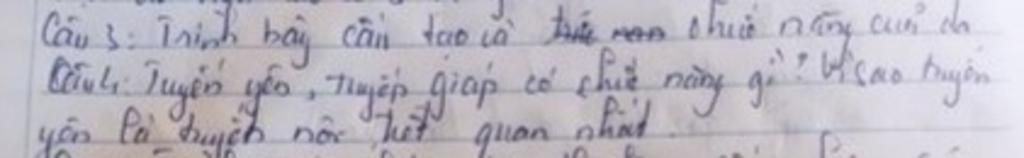 Câu 3: Trình bày cấu tạo và chức năng của da
Câu 4: Tuyến yên, tuyến giáp có chức năng gì? Vì sao tuyến
yên là tuyến nội tiết quan nhất.